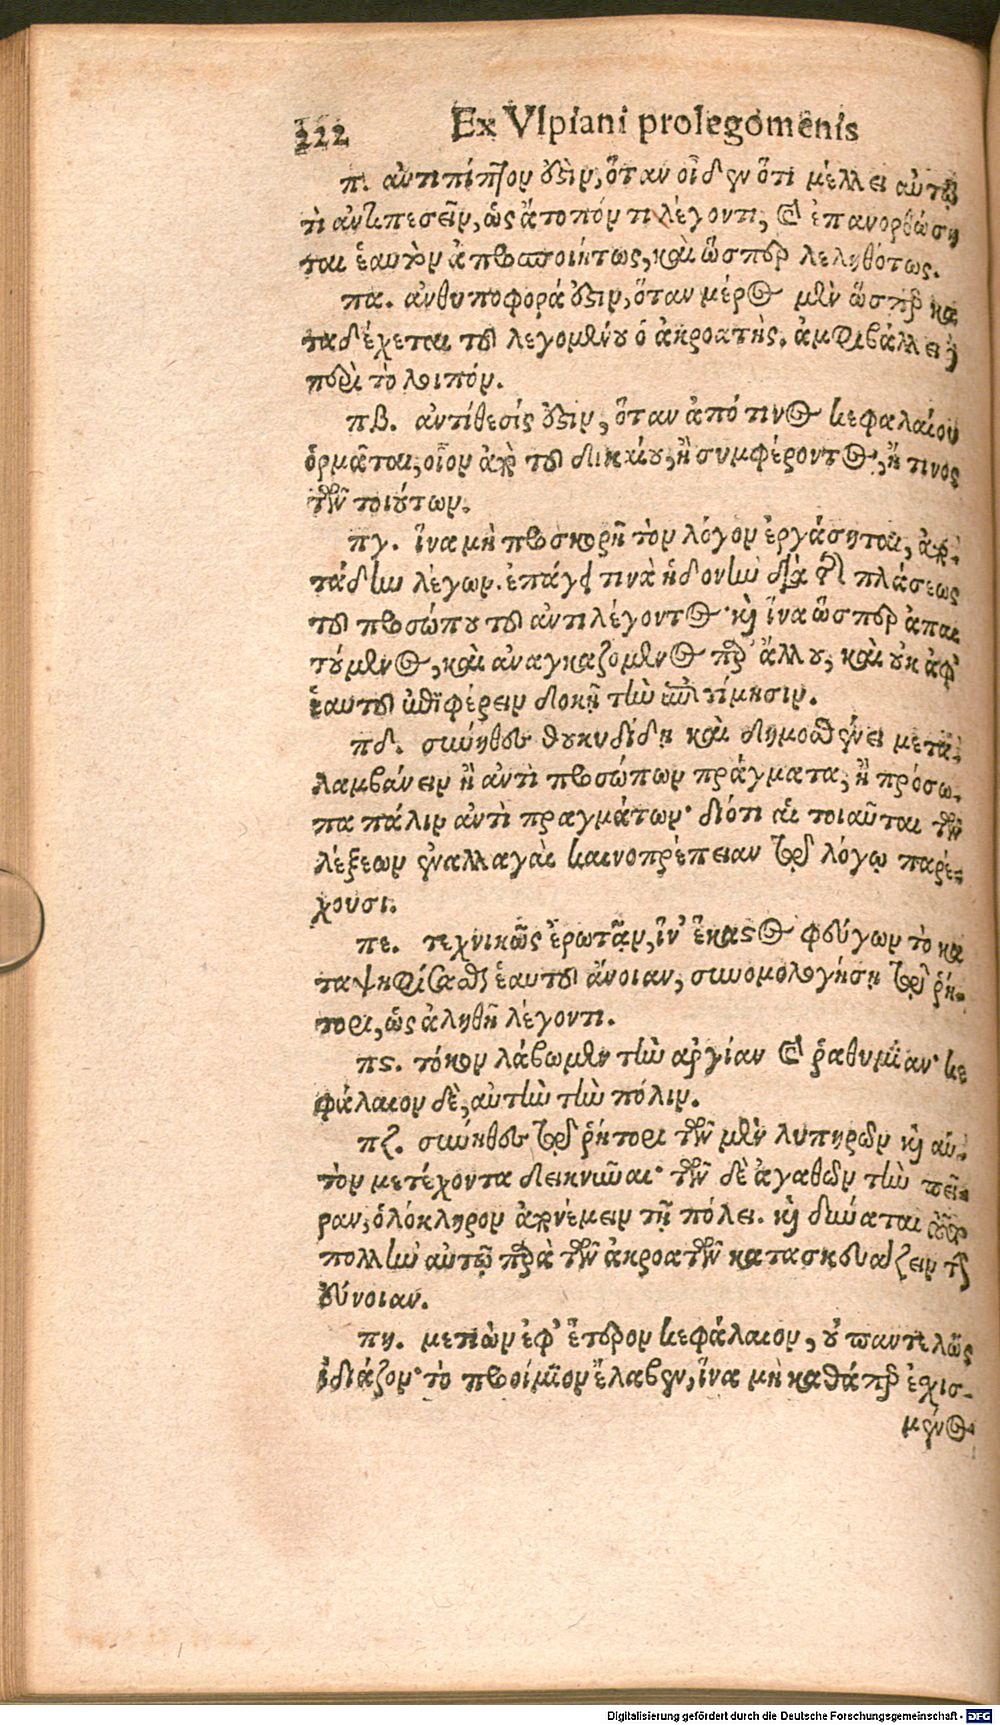 222 Ex Vlpiani prolegomenis
π. ἀντιπίπτον ὄξιν, ὅταν οἶδεν ὅτι μέλλει αὐτῷ
τὶ ἀντιπεσεῖν, ὡς ἄτοπόν τι λέγοντι, καὶ ἐπανορθώση
ται ἑαυτὸν ἀπροσποιήτως, καὶ ὥσπερ λεληθότως.
πα. ἀνθυποφορά ὄξιν, ὅταν μέρος μὲν ὥσπερ κα
ταδέχεται τοῦ λεγομένου ὁ ἀκροατὴς. ἀμφιβάλλει ἢ
περὶ τὸ λοιπόν.
πβ. ἀντίθεσίς ὄξιν, ὅταν ἀπό τινος κεφαλαίου
ὁρμᾶται, οἷον ἀπὸ τοῦ δικαίου, ἢ συμφέροντος, ἤ τινος
τῶν τοιούτων.
πγ. ἵνα μὴ προσκορῆ τὸν λόγον ἐργάσηται,
λέγων. ἐπάγει τινὰ ἡδονὴν διὰ τῆς πλάσεως
τοῦ προσώπου τοῦ ἀντιλέγοντος· καὶ ἵνα ὥσπερ ἀπαι
τούμενος, καὶ ἀναγκαζομενος παρ' ἄλλου, καὶ οὐκ ἀφ'
ἑαυτοῦ ἐπιφέρειν δοκῇ τὴν ἐπιτίμησιν.
πδ. σύνηθες θουκυδίδῃ καὶ δημοσθένει μετα-
λαμβάνειν ἢ ἀντὶ προσώπων πράγματα, ἢ πρόσω-
πα πάλιν ἀντὶ πραγμάτων· διότι αἱ τοιαῦται τῶν
λέξεων ἐναλλαγαὶ καινοπρέπειαν τῷ λόγῳ παρέ-
χουσι.
πε. τεχνικῶς ἐρωτᾷν, ἵν' ἕκαστος φεύγων τὸ κα
ταψηφίσασθαι ἑαυτοῦ ἄνοιαν, συνομολογήσῃ τῷ ῥή-
τορι, ὡς ἀληθῆ λέγοντι.
πς. τόκον λάβωμεν τὴν ἀργίαν καὶ ῥαθυμίαν· κε
φάλαιον δὲ, αὐτὴν τὴν πόλιν.
πζ. σύνηθες τῷ ῥήτορι τῶν μὲν λυπηρῶν καὶ αὑ-
τὸν μετέχοντα δεικνύναι· τῶν δὲ ἀγαθῶν τὴν πεῖ-
ραν, ὁλόκληρον ἀπονέμειν τῇ πόλει. καὶ δύναται
πολλὴν αὐτῷ παρὰ τῶν ἀκροατῶν κατασκευάζειν τὴν
εὔνοιαν.
πη. μετιὼν ἐφ' ἕτερον κεφάλαιον, οὐ παντελῶς
ἰδιάζον· τὸ προοίμιον ἔλαβεν, ἵνα μὴ καθάπερ ἐχισ-
μένος
Digitalisierung gefördert durch die Deutsche Forschungsgemeinschaft - DFG